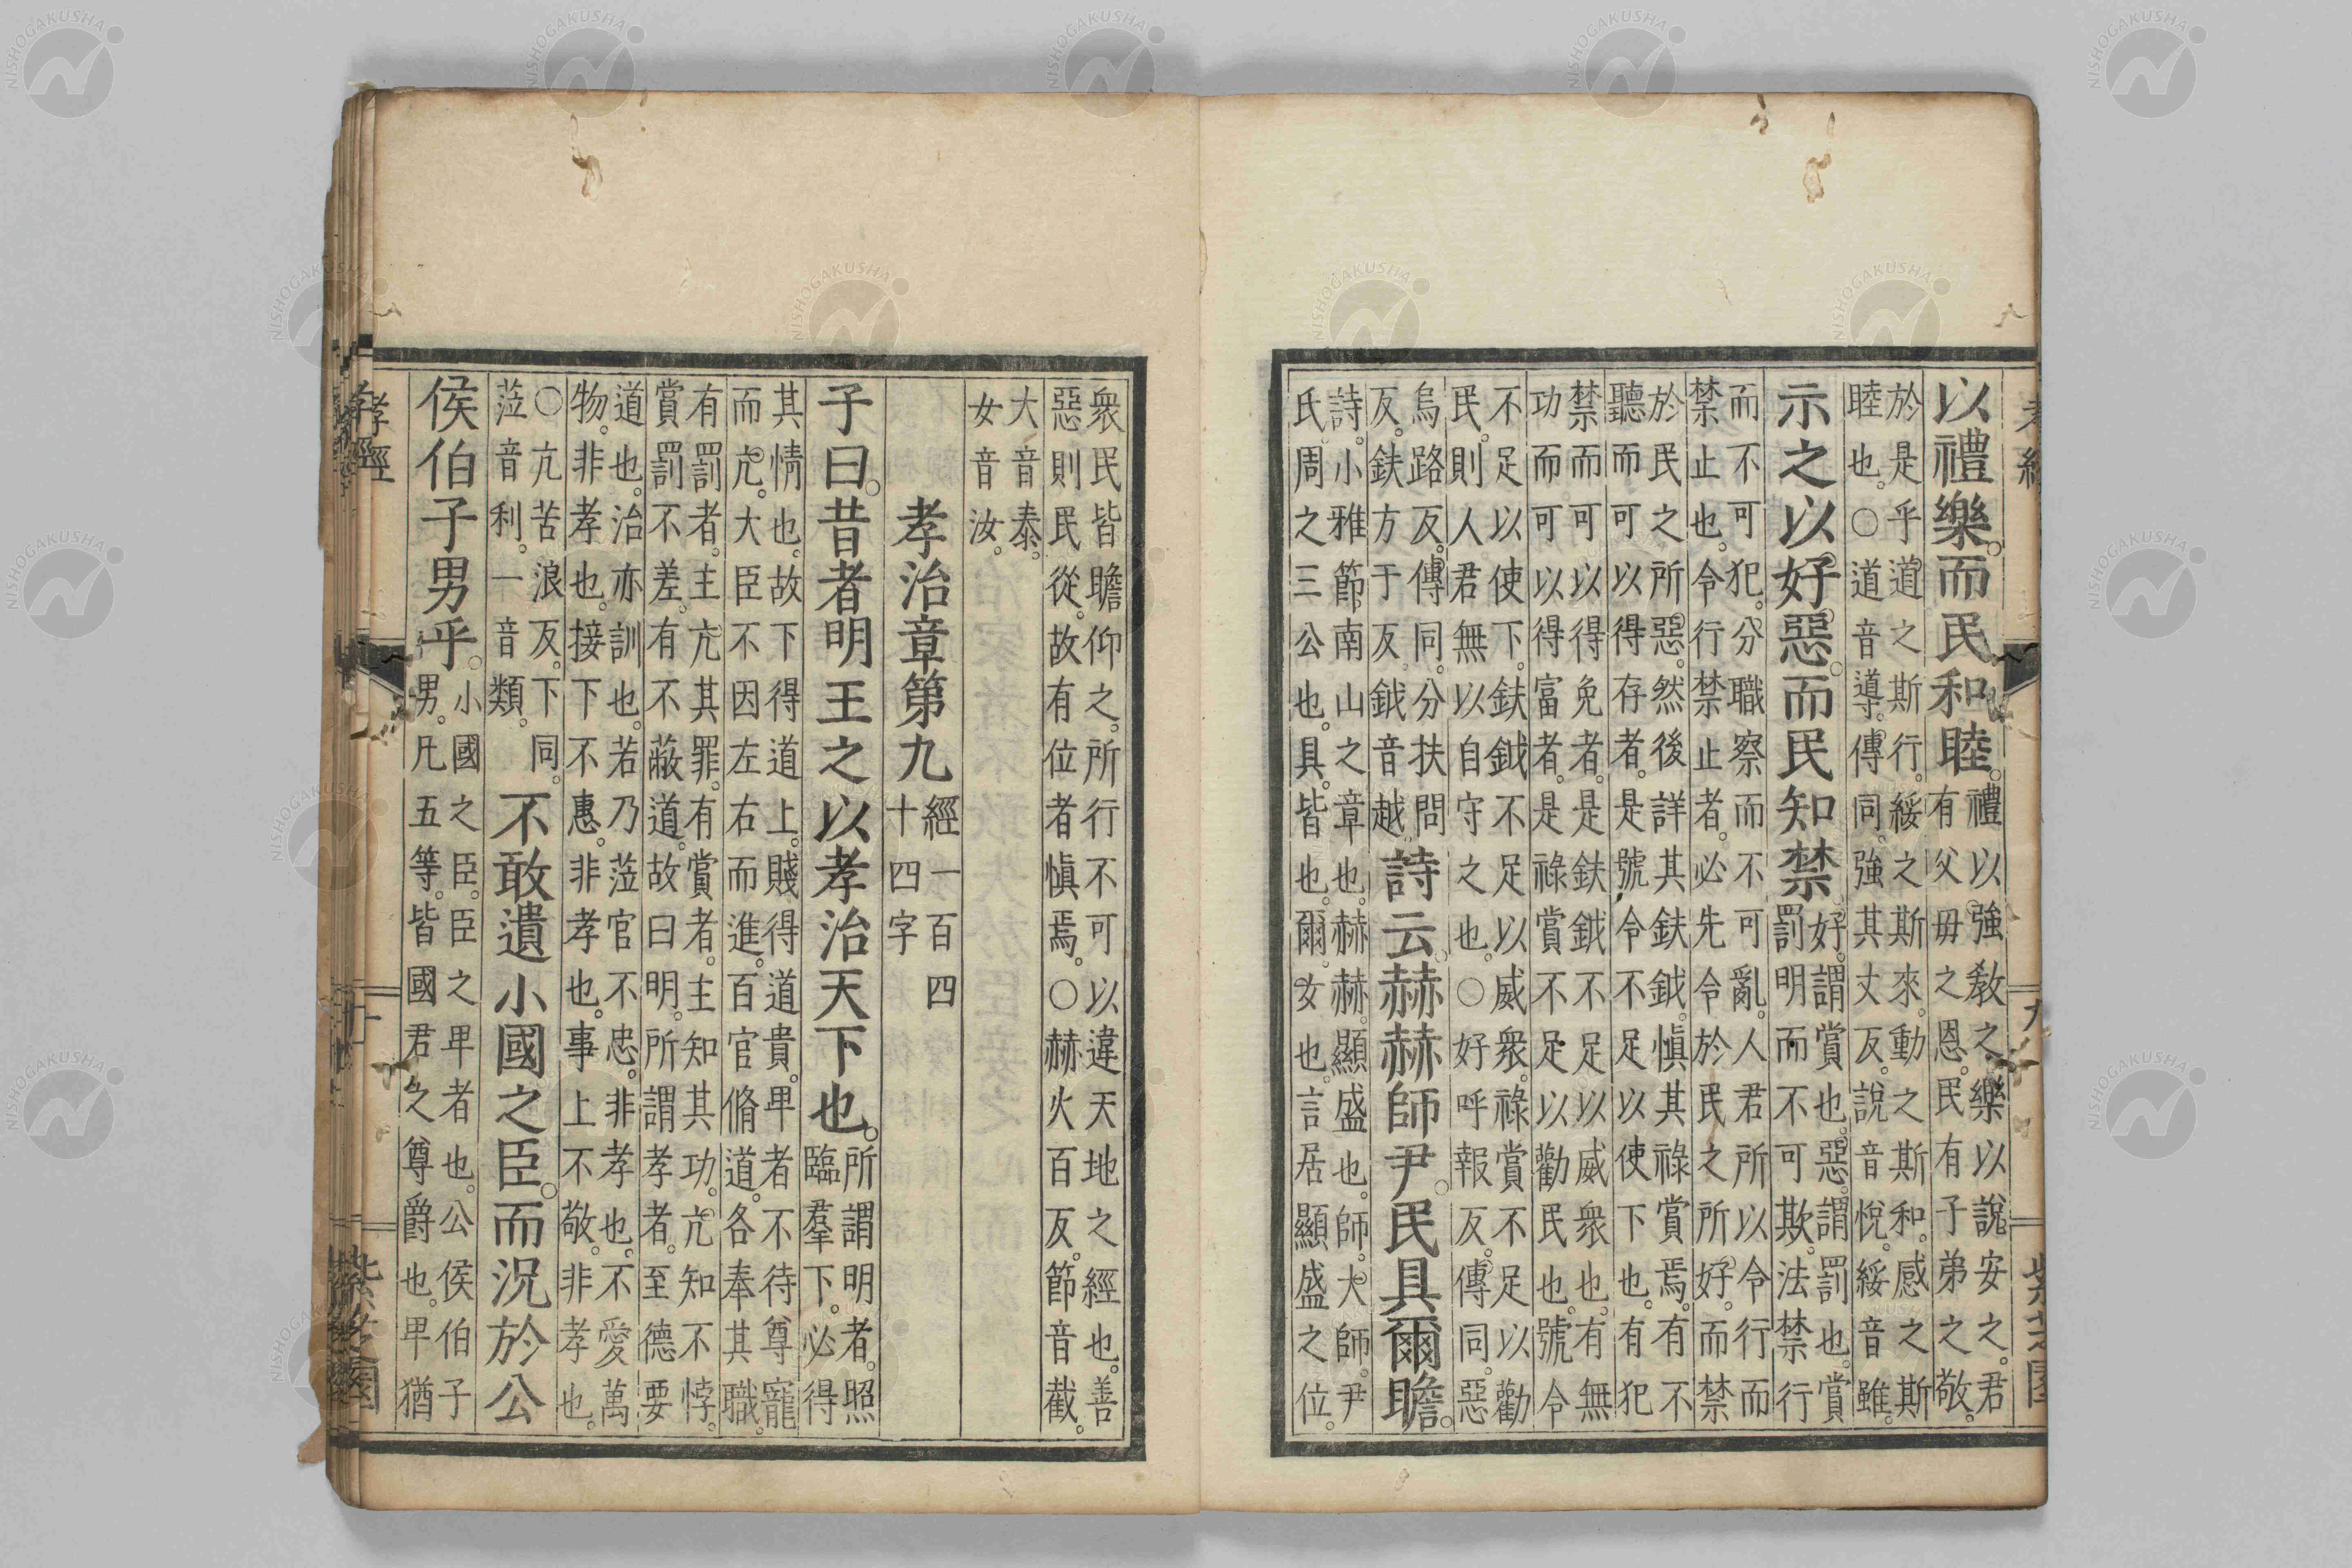 以禮樂。而民和睦。
禮以強教之樂以說安之。君
有父毋之恩。民有子弟之敬。
於是乎道之斯行。綏之斯來。動之斯和。感之斯
睦也。○道音導。傳同。強其丈反。說音悅。綏音雖。
示之以好惡。而民知禁。
好。謂賞也。惡。謂罰也。賞
罰明而不可欺。法禁行
而不可犯。分職察而不可亂。人君所以令行而
禁止也。令行禁止者。必先令於民之所好。而禁
於民之所惡。然後詳其鈇鉞。慎其祿賞焉。有不
聽而可以得存者。是號令不足以使下也。有犯
禁而可以得免者。是鈇鉞不足以威衆也。有無
功而可以得富者。是祿賞不足以勸民也。號令
不足以使下。鈇鉞不足以威衆。祿賞不足以勸
民。則人君無以自守之也。○好呼報反。傳同。惡
烏路反。傳同。分扶問
反。鈇方于反。鉞音越。
詩云。赫赫師尹。民具爾瞻。
詩。小雅節。南山之章也。赫赫。顯盛也。師。大師。尹
氏。周之三公也。具。皆也。爾。女也。言居顯盛之位。
衆民皆瞻仰之。所行不可以違天地之經也。善
惡則民從。故有位者慎焉。○赫火百反。節音截。
大音泰。
女音汝。
孝治章第九
經一百四
十四字
子曰。昔者明王之以孝治天下也。
所謂明者。照
臨羣下。必得
其情也。故下得道上。賤得道貴。卑者不待尊寵
而亢。大臣不因左右而進。百官脩道。各奉其職。
有罰者。主亢其罪。有賞者。主知其功。亢知不悖。
賞罰不差。有不蔽道。故曰明。所謂孝者。至德要
道也。治亦訓也。若乃蒞官不忠。非孝也。不愛萬
物。非孝也。接下不惠。非孝也。事上不敬。非孝也。
○亢苦浪反。下同。
蒞音利。一音類。
不敢遺小國之臣。而況於公
侯伯子男乎。
小國之臣。臣之卑者也。公侯伯子
男。凡五等。皆國君之尊爵也。卑猶
孝經